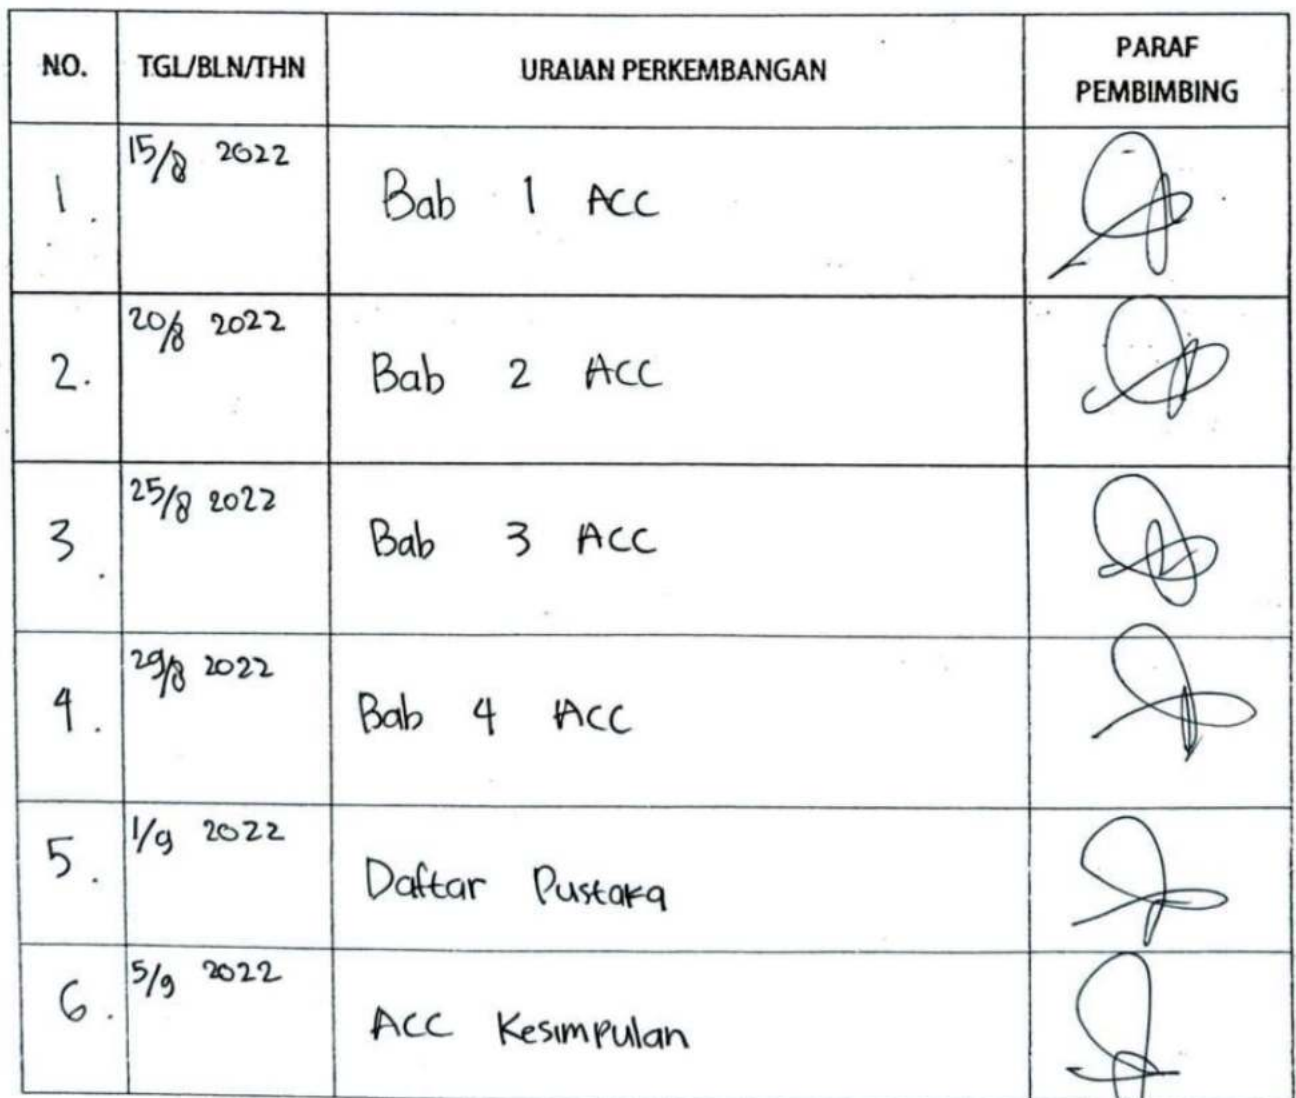 NO. TGL/BLN/THN URAIAN PERKEMBANGAN PARAF
PEMBIMBING
1. 15/8 2022 Bab 1 ACC
2. 20/8 2022 Bab 2 ACC
3. 25/8 2022 Bab 3 ACC
4. 29/8 2022 Bab 4 ACC
5. 1/9 2022 Daftar Pustaka
6. 5/9 2022 ACC Kesimpulan